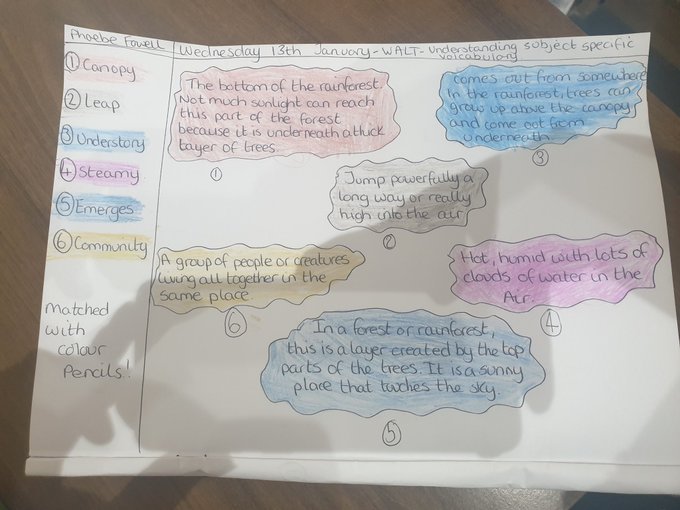 Phoebe Fowell
Wednesday 13th January - WALT - Understanding subject specific
vocabulary
① Canopy
② Leap
③ Understory
④ Steamy
⑤ Emerges
⑥ Community
Matched
with
colour
Pencils!
The bottom of the rainforest.
Not much sunlight can reach
this part of the forest
because it is underneath a thick
layer of trees
①
comes out from somewhere
In the rainforest, trees can
grow up above the canopy
and come out from
underneath
③
Jump powerfully a
long way or really
high into the air
②
A group of people or creatures
living all together in the
same place.
⑥
Hot, humid with lots of
clouds of water in the
Air.
④
In a forest or rainforest,
this is a layer created by the top
parts of the trees. It is a sunny
place that touches the sky.
⑤